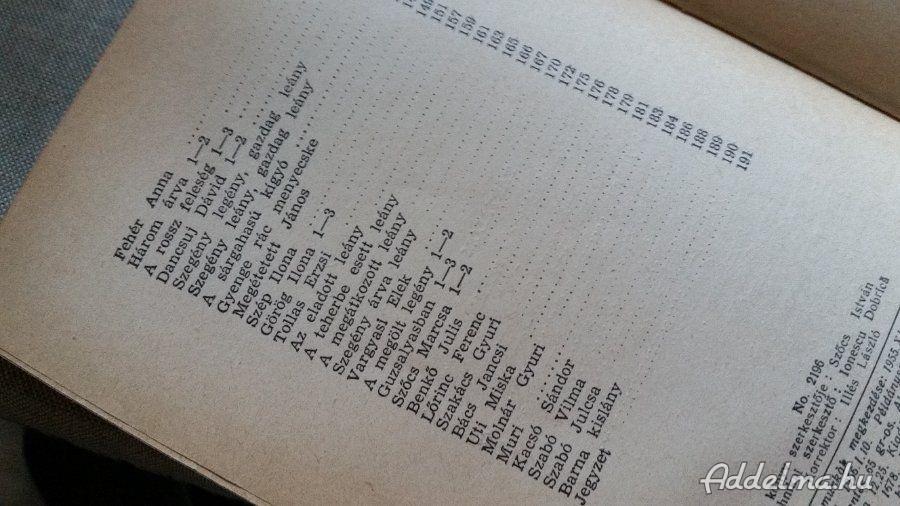 Fehér Anna 1—2
Három árva
A rossz feleség 1—3
Dancsuj Dávid 1—2
Szegény legény, gazdag leány
Szegény leány, gazdag leány
A sárgahasú kígyó
Gyenge rác menyecske
Megétetett János
Szép Ilona
Görög Ilona 1—3
Tollas Erzsi
Az eladott leány
A teherbe esett leány
A megátkozott leány
Szegény árva leány
Vargyasi Elek
A megölt legény 1—2
Guzsalyasban 1—3
Szőcs Marcsa 1—2
Benkő Julis
Lőrinc Ferenc
Szakács Gyuri
Bács Jancsi
Uti Miska
Molnár Gyuri
Muri
Kacsó Sándor
Szabó Vilma
Szabó Julcsa
Barna kislány
Jegyzet
149
151
157
159
161
163
165
166
167
170
172
175
176
178
179
181
183
184
186
188
189
190
191
No. 2196
szerkesztője: Szőcs István
szerkesztő: Ionescu Dobrică
korrektor: Illés László
megkezdése: 1955.
Addelma.hu